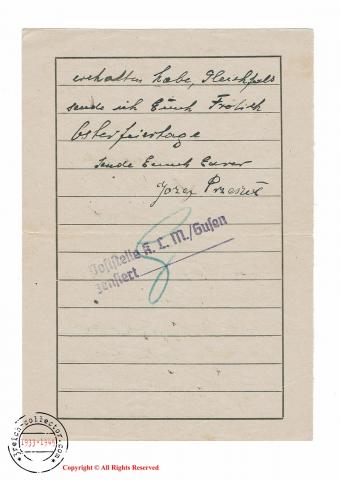 erhalten habe, Gleichfals
sende ich Euch Frölich
Osterfeiertage
sende Eeuch Eurer
Jozef
Poststelle K. L. M./Gusen
zensiert
reich-collector.com
1933-1945
Copyright © All Rights Reserved